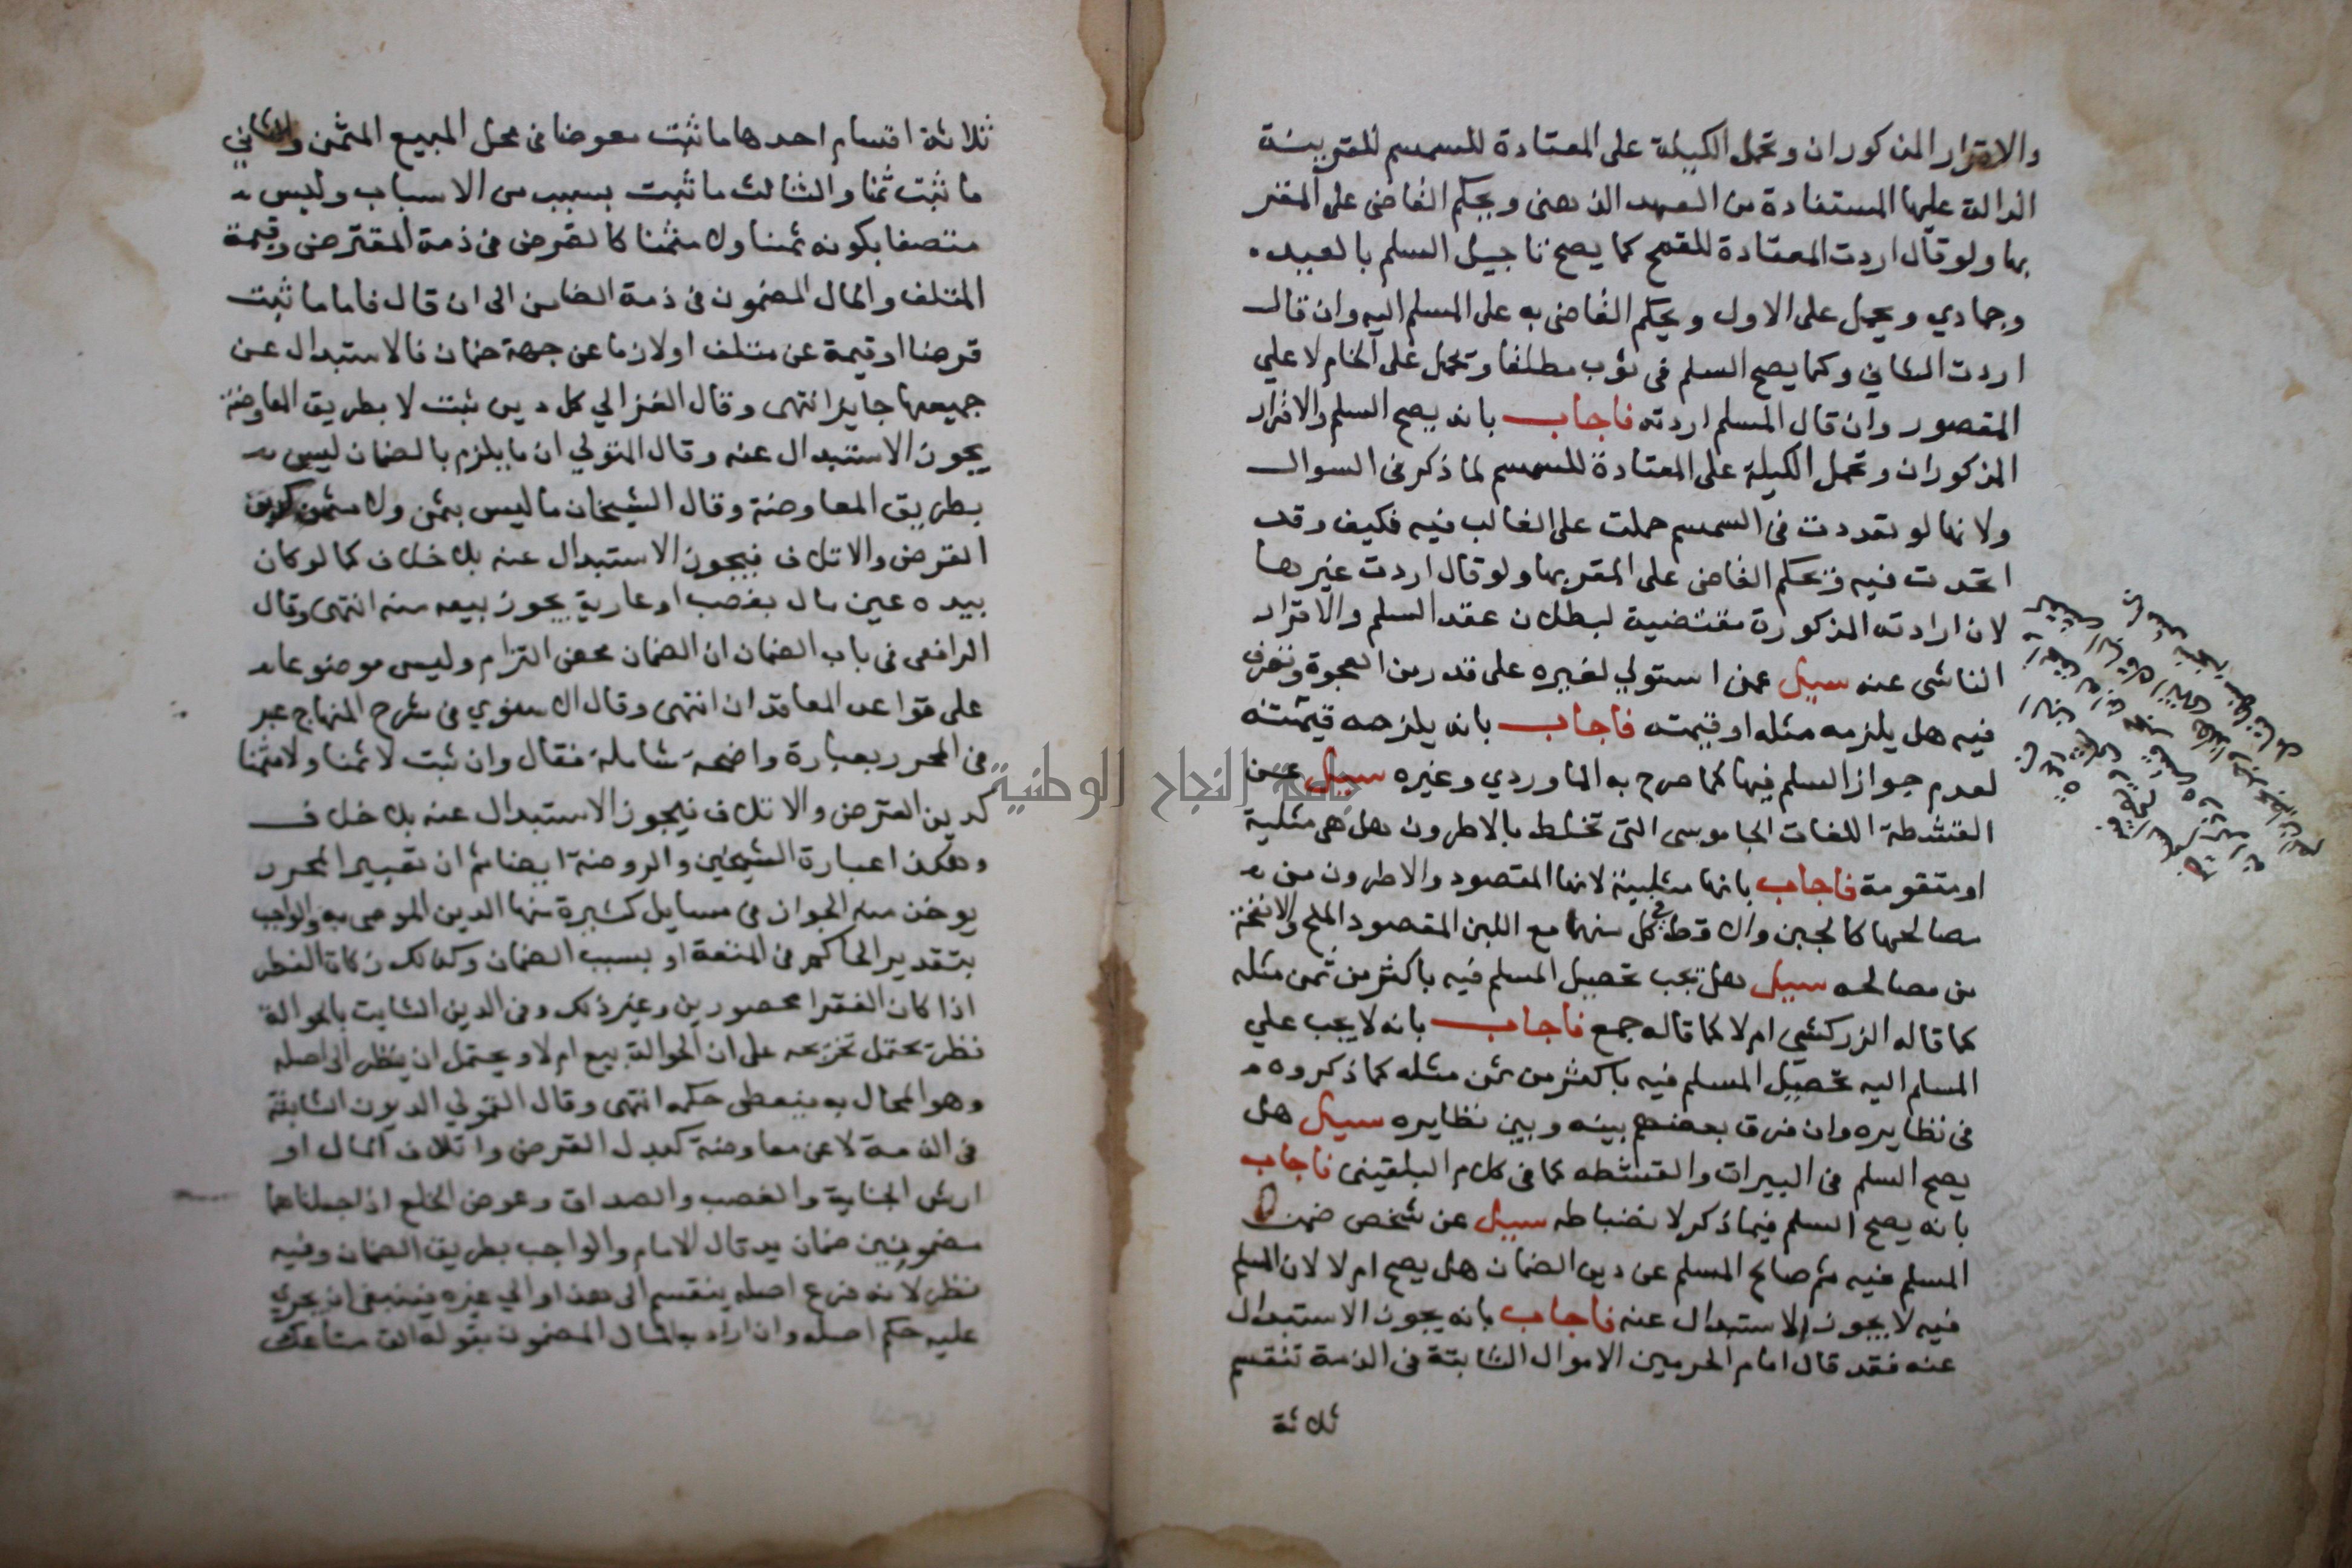 والاقرار المذكوران وتحمل الكيلة على المعتادة للسمسم للقرينة
الدالة عليها المستفادة من العهد الذهني ويحكم القاضي على المقر
بها ولو قال اردت المعتادة للقمح كما يصح تاجيل السلم بالعيد
وجمادي ويحمل على الاول ويحكم القاضي به على المسلم اليه وان قال
اردت الثاني وكما يصح السلم في ثوب مطلقا وتحمل على الخام لا علي
المقصور وان قال المسلم اردته فاجاب بانه يصح السلم والاقرار
المذكوران وتحمل الكيلة على المعتادة للسمسم لما ذكر في السوال
ولانها لو تعددت في السمسم حملت على الغالب فيه فكيف وقد
اتحدت فيه فيحكم القاضي على المقر بها ولو قال اردت غيرها
لان ارادته المذكورة مقتضية لبطلان عقد السلم والاقرار
الناشي عنه سيل عمن استولي لغيره على قدر من العجوة وتصرف
فيه هل يلزمه مثله او قيمته فاجاب بانه يلزمه قيمته
لعدم جواز السلم فيها كما صرح به الماوردي وغيره سيل عن
القشطة اللفات الجاموسى التى تخلط بالاطرون هل هى مثلية
او متقومة فاجاب بانها مثلية لانها المقصود والاطرون من
مصالحها كالجبن والاقط في كل منهما مع اللبن المقصود الملح والانفحة
من مصالحه سيل هل يجب تحصيل المسلم فيه باكثر من ثمن مثله
كما قاله الزركشي ام لا كما قاله جمع فاجاب بانه لا يجب علي
المسلم اليه تحصيل المسلم فيه باكثر من ثمن مثله كما ذكروه
في نظايره وان فرق بعضهم بينه وبين نظايره سيل هل
يصح السلم في البيرات والقشطه كما في كلام البلقيني فاجاب
بانه يصح السلم فيما ذكر لانضباطه سيل عن شخص ضمن
المسلم فيه ثم صالح المسلم عن دين الضمان هل يصح ام لا لان المسلم
فيه لا يجوز الاستبدال عنه فاجاب بانه يجوز الاستبدال
عنه فقد قال امام الحرمين الاموال الثابتة في الذمة تنقسم
ثلاثة
ثلاثة اقسام احدها ما ثبت معوضا في محل المبيع المثمن والثاني
ما ثبت ثمنا والثالث ما ثبت بسبب من الاسباب وليس
متصفا بكونه ثمنا ولا مثمنا كالقرض في ذمة المقترض وقيمة
المتلف والمال المضمون في ذمة الضامن الى ان قال فاما ما ثبت
قرضا او قيمة عن متلف او لازما عن جهة ضمان فالاستبدال عن
جميعها جايز انتهى وقال الغزالي كل دين ثبت لا بطريق المعاوضة
يجوز الاستبدال عنه وقال المتولي ان ما يلزم بالضمان ليس
بطريق المعاوضة وقال الشيخان ما ليس بثمن ولا مثمن كدين
القرض والاتلاف فيجوز الاستبدال عنه بلا خلاف كما لو كان
بيده عين مال بغصب او عارية يجوز بيعه منه انتهى وقال
الرافعي في باب الضمان ان الضمان محض التزام وليس موضوعا
على قواعد المعاقدان انتهى وقال الاسنوي في شرح المنهاج عبر
في المحرر بعبارة واضحة شاملة فقال وان ثبت لا ثمنا ولا مثمنا
كدين القرض والاتلاف فيجوز الاستبدال عنه بلا خلاف
وهكذا عبارة الشرحين والروضة ايضا ثم ان تعبير المحرر
يوخذ منه الجواز في مسايل كثيرة منها الدين الموصى به والواجب
بتقدير الحاكم في المتعة او بسبب الضمان وكذلك زكاة الفطر
اذا كان الفقرا محصورين وغير ذلك وفي الدين الثابت بالحوالة
نظر يحتمل تخريجه على ان الحوالة بيع ام لا ويحتمل ان ينظر الى اصله
وهو المحال به فيعطى حكمه انتهى وقال القمولي الديون الثابتة
في الذمة لا عن معاوضة كبدل القرض واتلاف المال او
ارش الجناية والغصب والصداق وعوض الخلع اذا جعلناهما
مضمونين ضمان يد قال الامام والواجب بطريق الضمان وفيه
نظر لانه فرع اصله ينقسم الى هذا والي غيره فينبغي ان يجري
عليه حكم اصله وان اراد بالمال المضمون بقوله
جامعة النجاح الوطنية